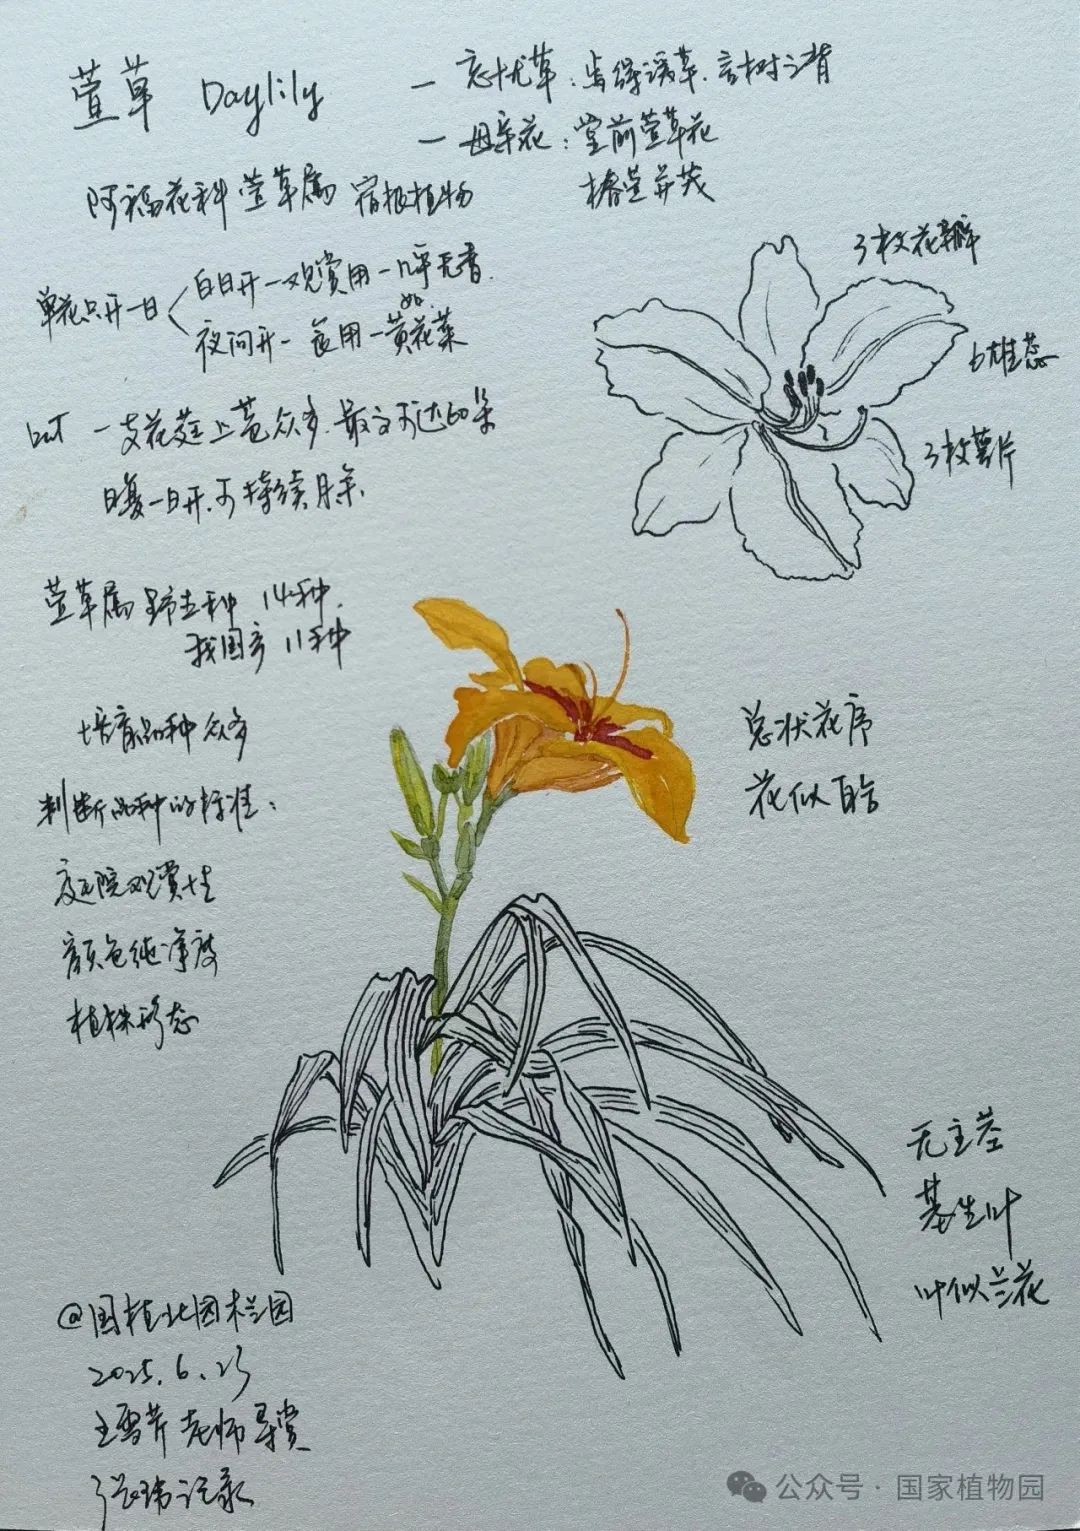 萱草 Daylily
— 忘忧草：焉得谖草，言树之背
— 母亲花：堂前萱草花
椿萱并茂
阿福花科 萱草属 宿根植物
单花只开一日
白日开—观赏用—几乎无香
夜间开—食用—如黄花菜
but 一支花莛上苞众多，最多可达60朵
日复一日开，可持续月余
3枚花瓣
6雄蕊
3枚萼片
萱草属 野生种 14种，
我国产 11种
培育品种众多
判断品种的标准：
庭院观赏性
颜色纯净度
植株形态
总状花序
花似百合
无主茎
基生叶
叶似兰花
@国植北园木兰园
2025.6.23
王雪芹老师导赏
张玮记录
公众号·国家植物园